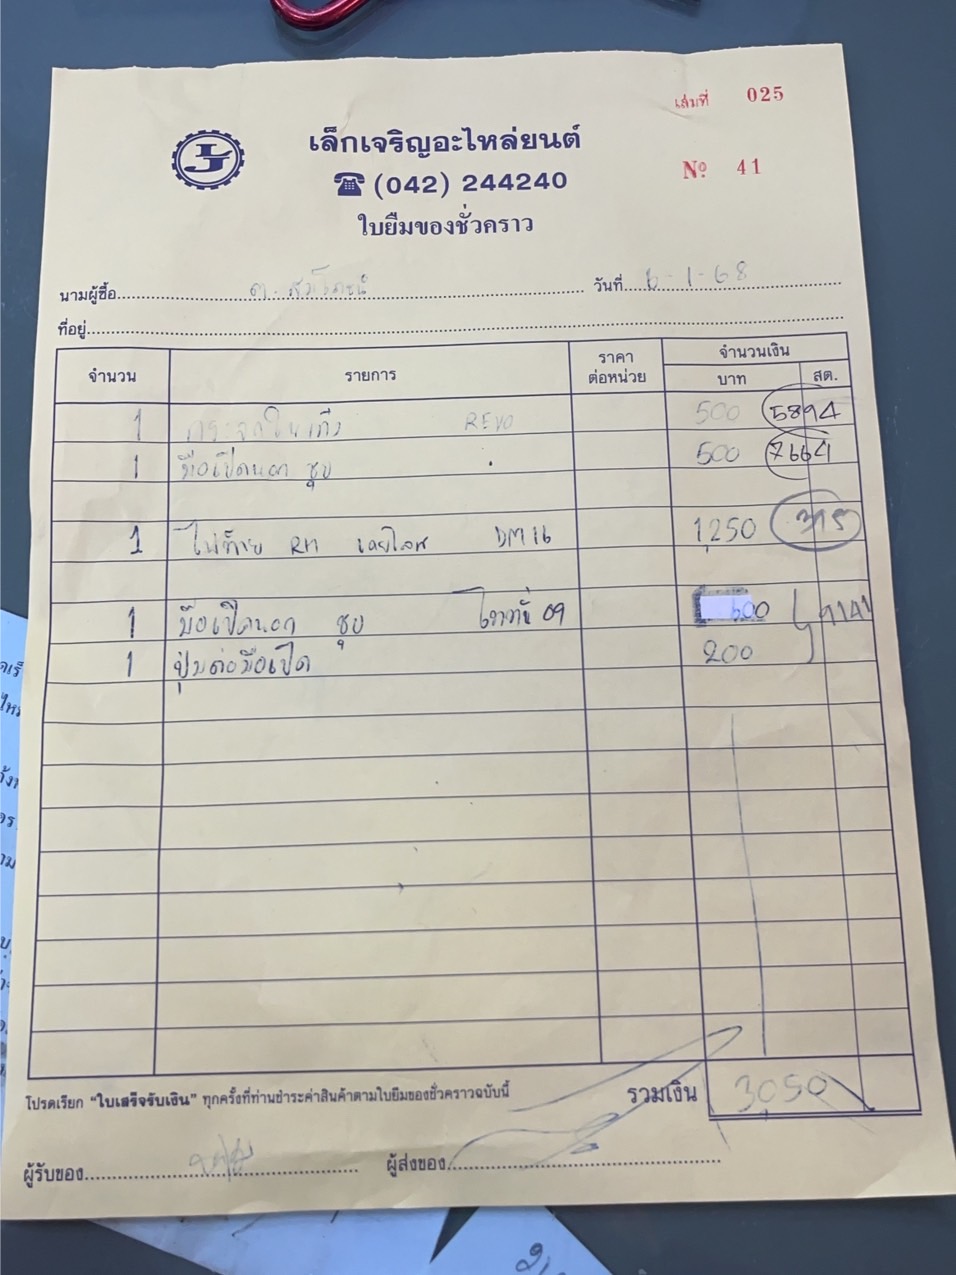 เล่มที่ 025
เล็กเจริญอะไหล่ยนต์
(042) 244240
Nº 41
ใบยืมของชั่วคราว
นามผู้ซื้อ วันที่ 6-1-68
ที่อยู่
จำนวน รายการ ราคาต่อหน่วย จำนวนเงิน บาท สต.
1 REVO 500 5894
1 มือเปิดนอก ชุบ 500 7664
1 ไฟท้าย RH DM16 1,250
1 มือเปิดนอก ชุบ 09 600
1 ปุ่มต่อมือเปิด 200
โปรดเรียก "ใบเสร็จรับเงิน" ทุกครั้งที่ท่านชำระค่าสินค้าตามใบยืมของชั่วคราวฉบับนี้ รวมเงิน 3,050
ผู้รับของ ผู้ส่งของ